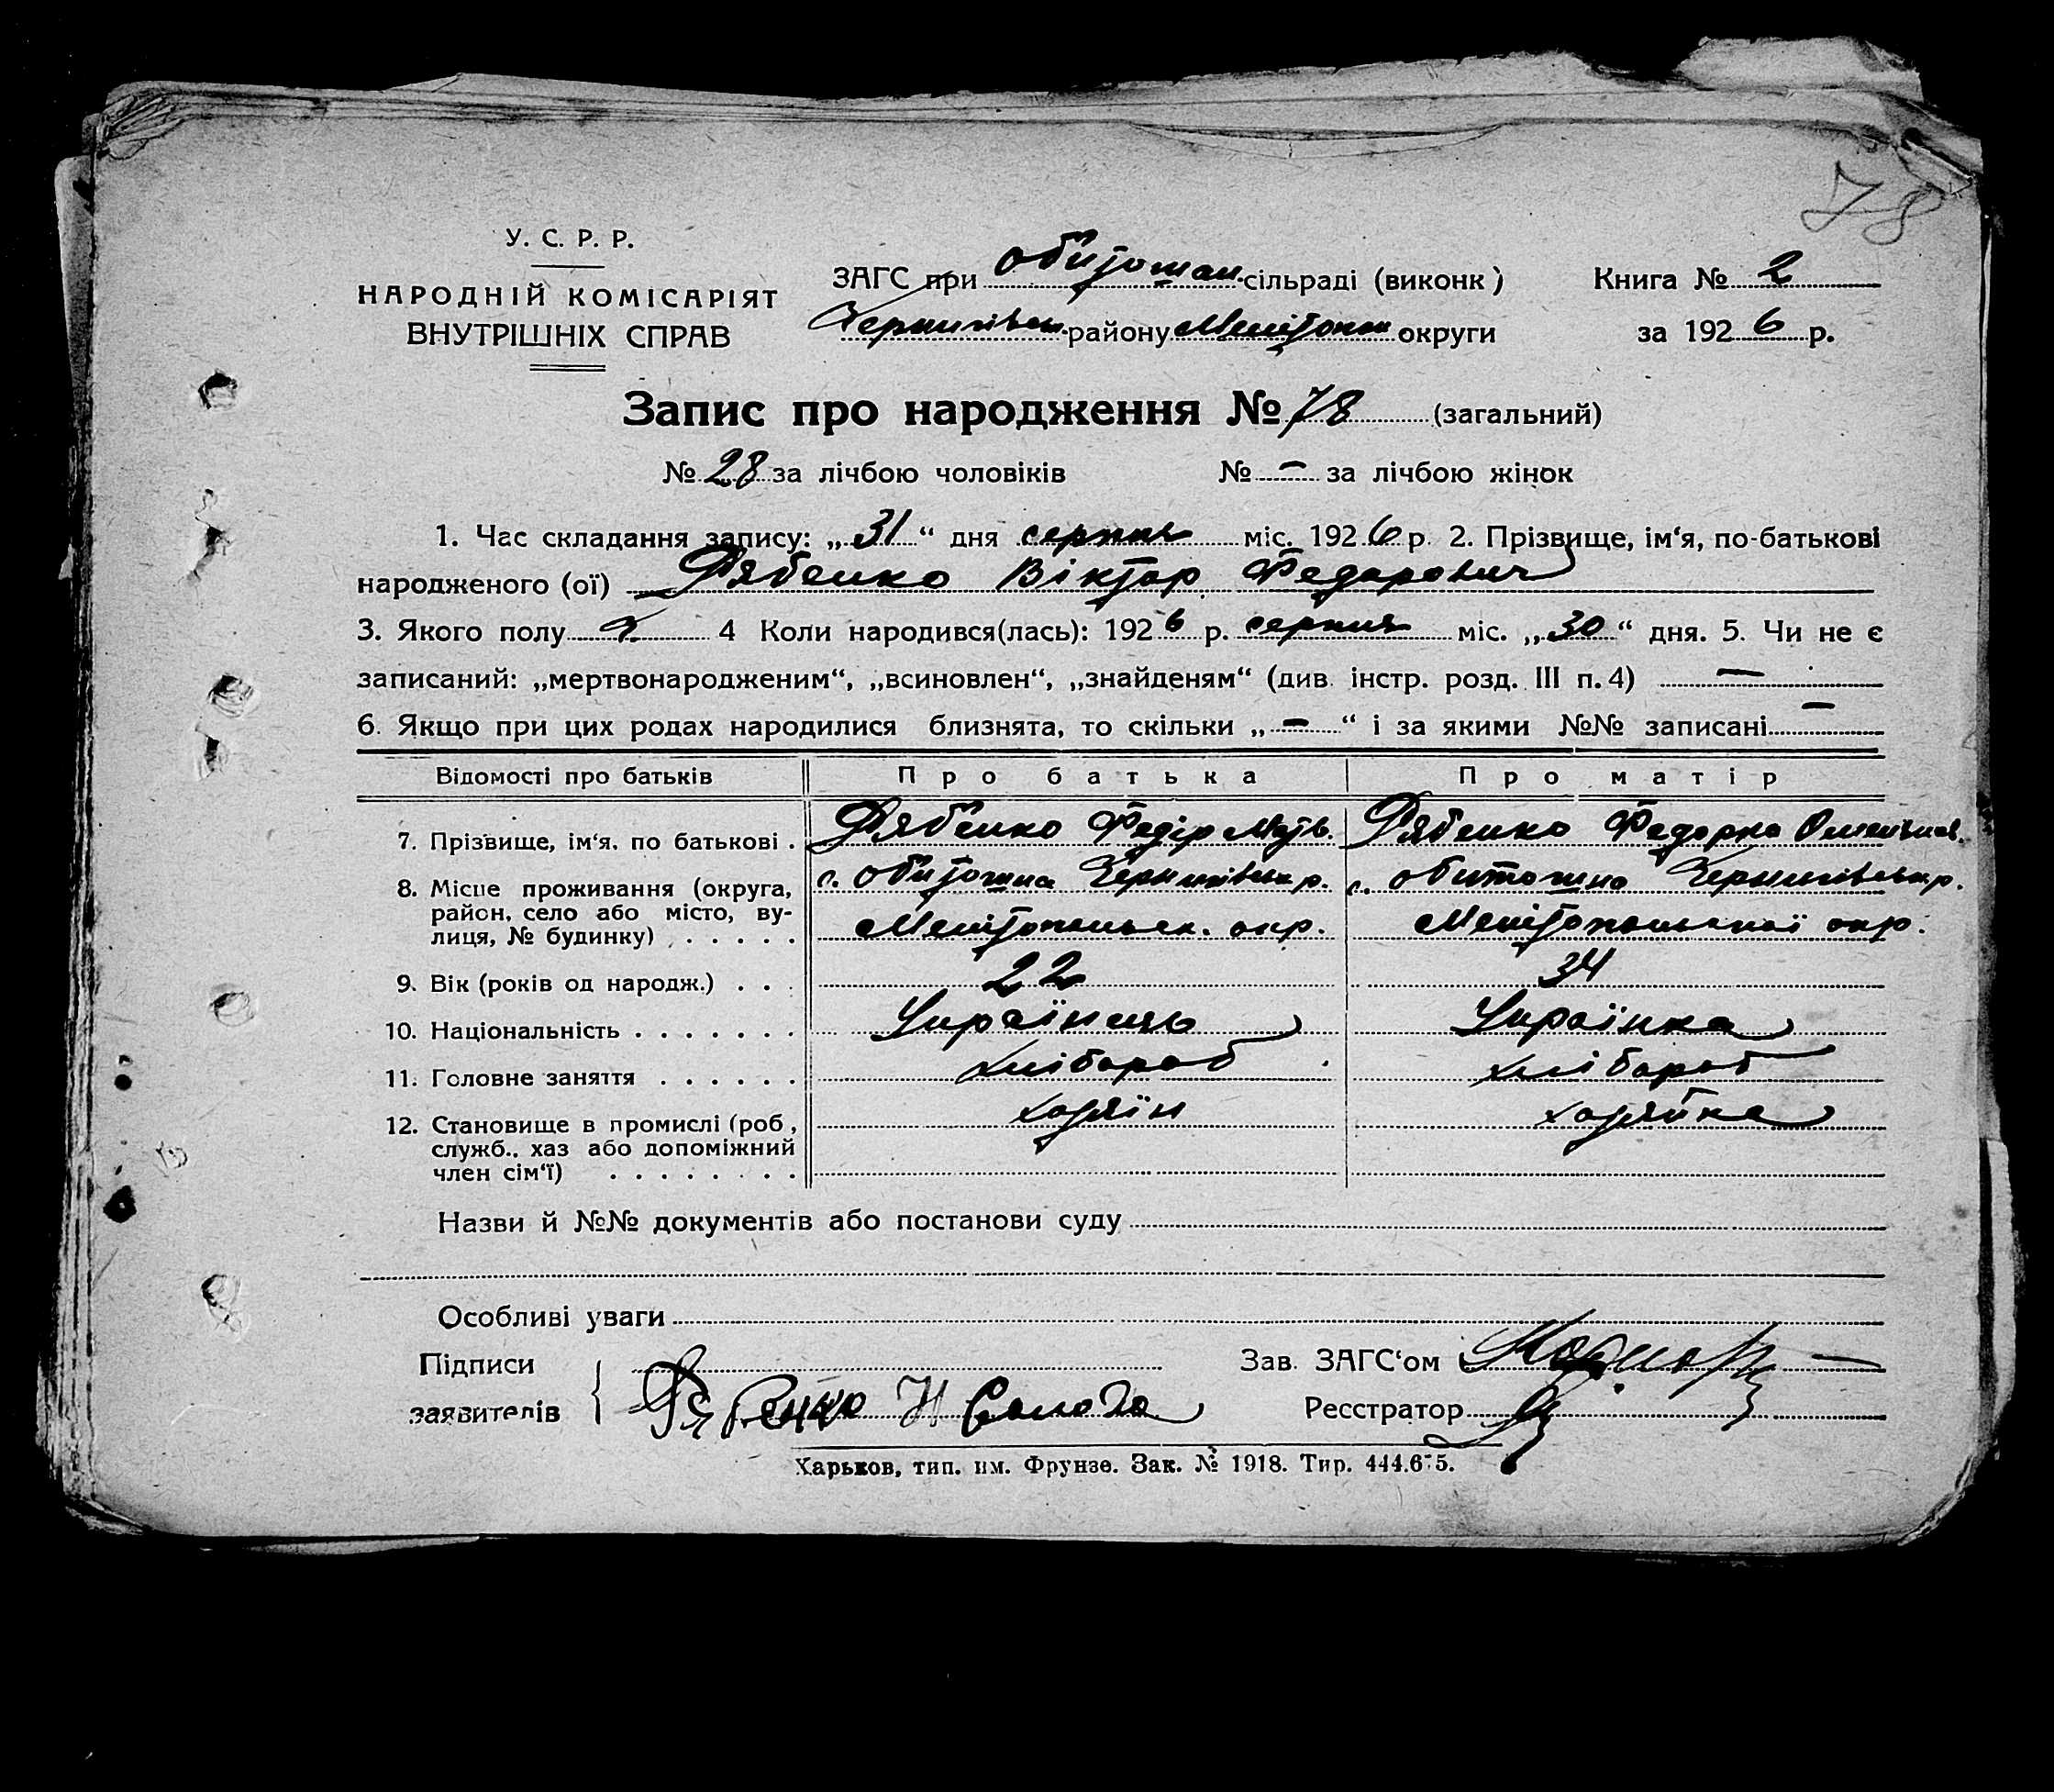 78
У. С. Р. Р.
НАРОДНІЙ КОМІСАРІЯТ
ВНУТРІШНІХ СПРАВ
ЗАГС при Обиточан. сільраді (виконк)
Чернигівськ. району Мелітопол округи
Книга № 2
за 1926 р.
Запис про народження № 78 (загальний)
№ 28 за лічбою чоловіків № — за лічбою жінок
1. Час складання запису: „31“ дня серпня міс. 1926 р. 2. Прізвище, ім‘я, по-батькові
народженого (ої) Рябенко Віктор Федорович
3. Якого полу ч. 4 Коли народився(лась): 1926 р. серпня міс. „30“ дня. 5. Чи не є
записаний: „мертвонародженим“, „всиновлен“, „знайденям“ (див. інстр. розд. III п. 4) —
6. Якщо при цих родах народилися близнята, то скільки „—“ і за якими №№ записані —
Відомості про батьків Про батька Про матір
7. Прізвище, ім‘я, по батькові . Рябенко Федір Матв. Рябенко Федорка
8. Місце проживання (округа, с. Обиточна Чернигівськ р. с. Обиточна Чернигівськ р.
район, село або місто, ву-
лиця, № будинку) . . . . . Мелітопольск. окр. Мелітопольської окр.
9. Вік (років од народж.) . . . 22 34
10. Національність . . . . . . . Українець Українка
11. Головне заняття . . . . . . хлібороб хлібороб
12. Становище в промислі (роб, хозяїн хозяйка
служб., хаз або допоміжний
член сім‘ї) . . . . . . . .
Назви й №№ документів або постанови суду
Особливі уваги
Підписи Зав. ЗАГС‘ом
заявителів Рябенко Реєстратор
Харьков, тип. им. Фрунзе. Зак. № 1918. Тир. 444.675.